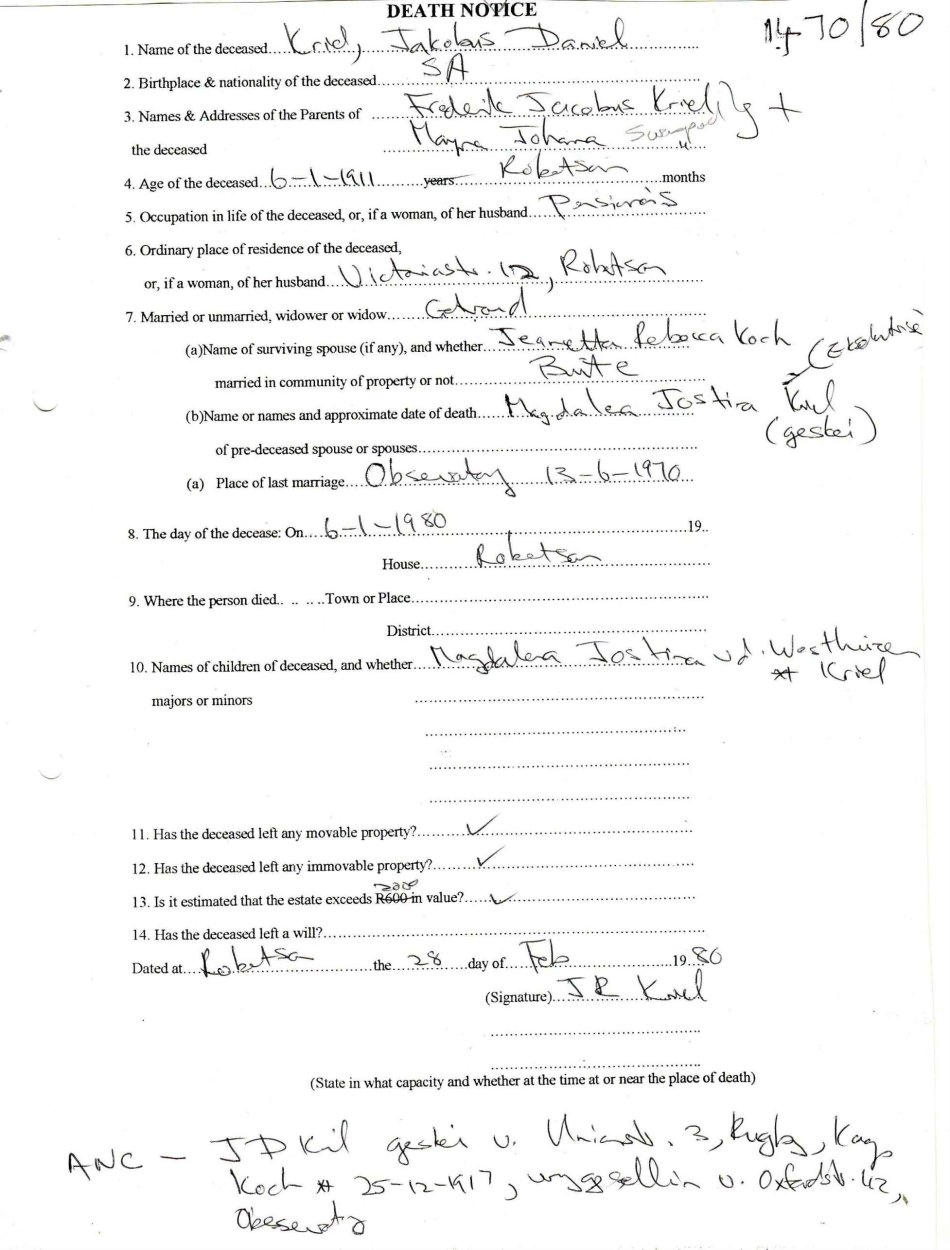 DEATH NOTICE
1470/80
1. Name of the deceased....Kriel, Jakobus Daniel
2. Birthplace & nationality of the deceased....SA
3. Names & Addresses of the Parents of ....Frederik Jacobus Kriel, } +
the deceased ....Johana
4. Age of the deceased...6-1-1911....years....Robertson....months
5. Occupation in life of the deceased, or, if a woman, of her husband....
6. Ordinary place of residence of the deceased,
or, if a woman, of her husband....Victoriastr. 12, Robertson
7. Married or unmarried, widower or widow....Getroud
(a)Name of surviving spouse (if any), and whether...Jeanetta Rebecca Koch
married in community of property or not....Buite
(b)Name or names and approximate date of death....Magdalena Kriel
of pre-deceased spouse or spouses.... (geskei)
(a) Place of last marriage....Observatory 13-6-1970
8. The day of the decease: On....6-1-1980....19..
House....Robertson
9. Where the person died.. .. .. ..Town or Place....
District....
10. Names of children of deceased, and whether....Magdalena vd. Westhuizen
majors or minors * Kriel
11. Has the deceased left any movable property?....✓
12. Has the deceased left any immovable property?....✓
13. Is it estimated that the estate exceeds R600 in value?....✓
14. Has the deceased left a will?....
Dated at....Robertson....the...28...day of...Feb....19.80
(Signature)...J R Kriel
(State in what capacity and whether at the time at or near the place of death)
ANC - J D geskei v. 3, Rugby,
Koch * 25-12-1917, v. Oxfordstr. 42,